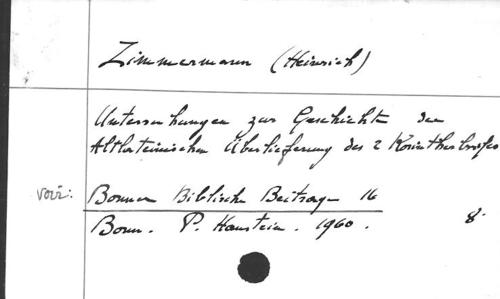 Zimmermann (Heinrich)
Untersuchungen zur Geschichte der
Altlateinischen Überlieferung des 2 Korintherbriefes
voir: Bonner Biblische Beitrage 16
Bonn. P. Hanstein. 1960. 8°